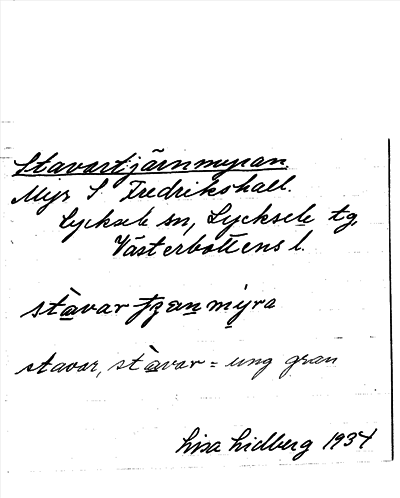 Stavartjärnmyran.
Myr S Fredrikshall.
Lycksele sn, Lycksele tg,
Västerbottens l.
stàvar tʒän mỳra
stavar, stàvar = ung gran
Lisa Lidberg 1934